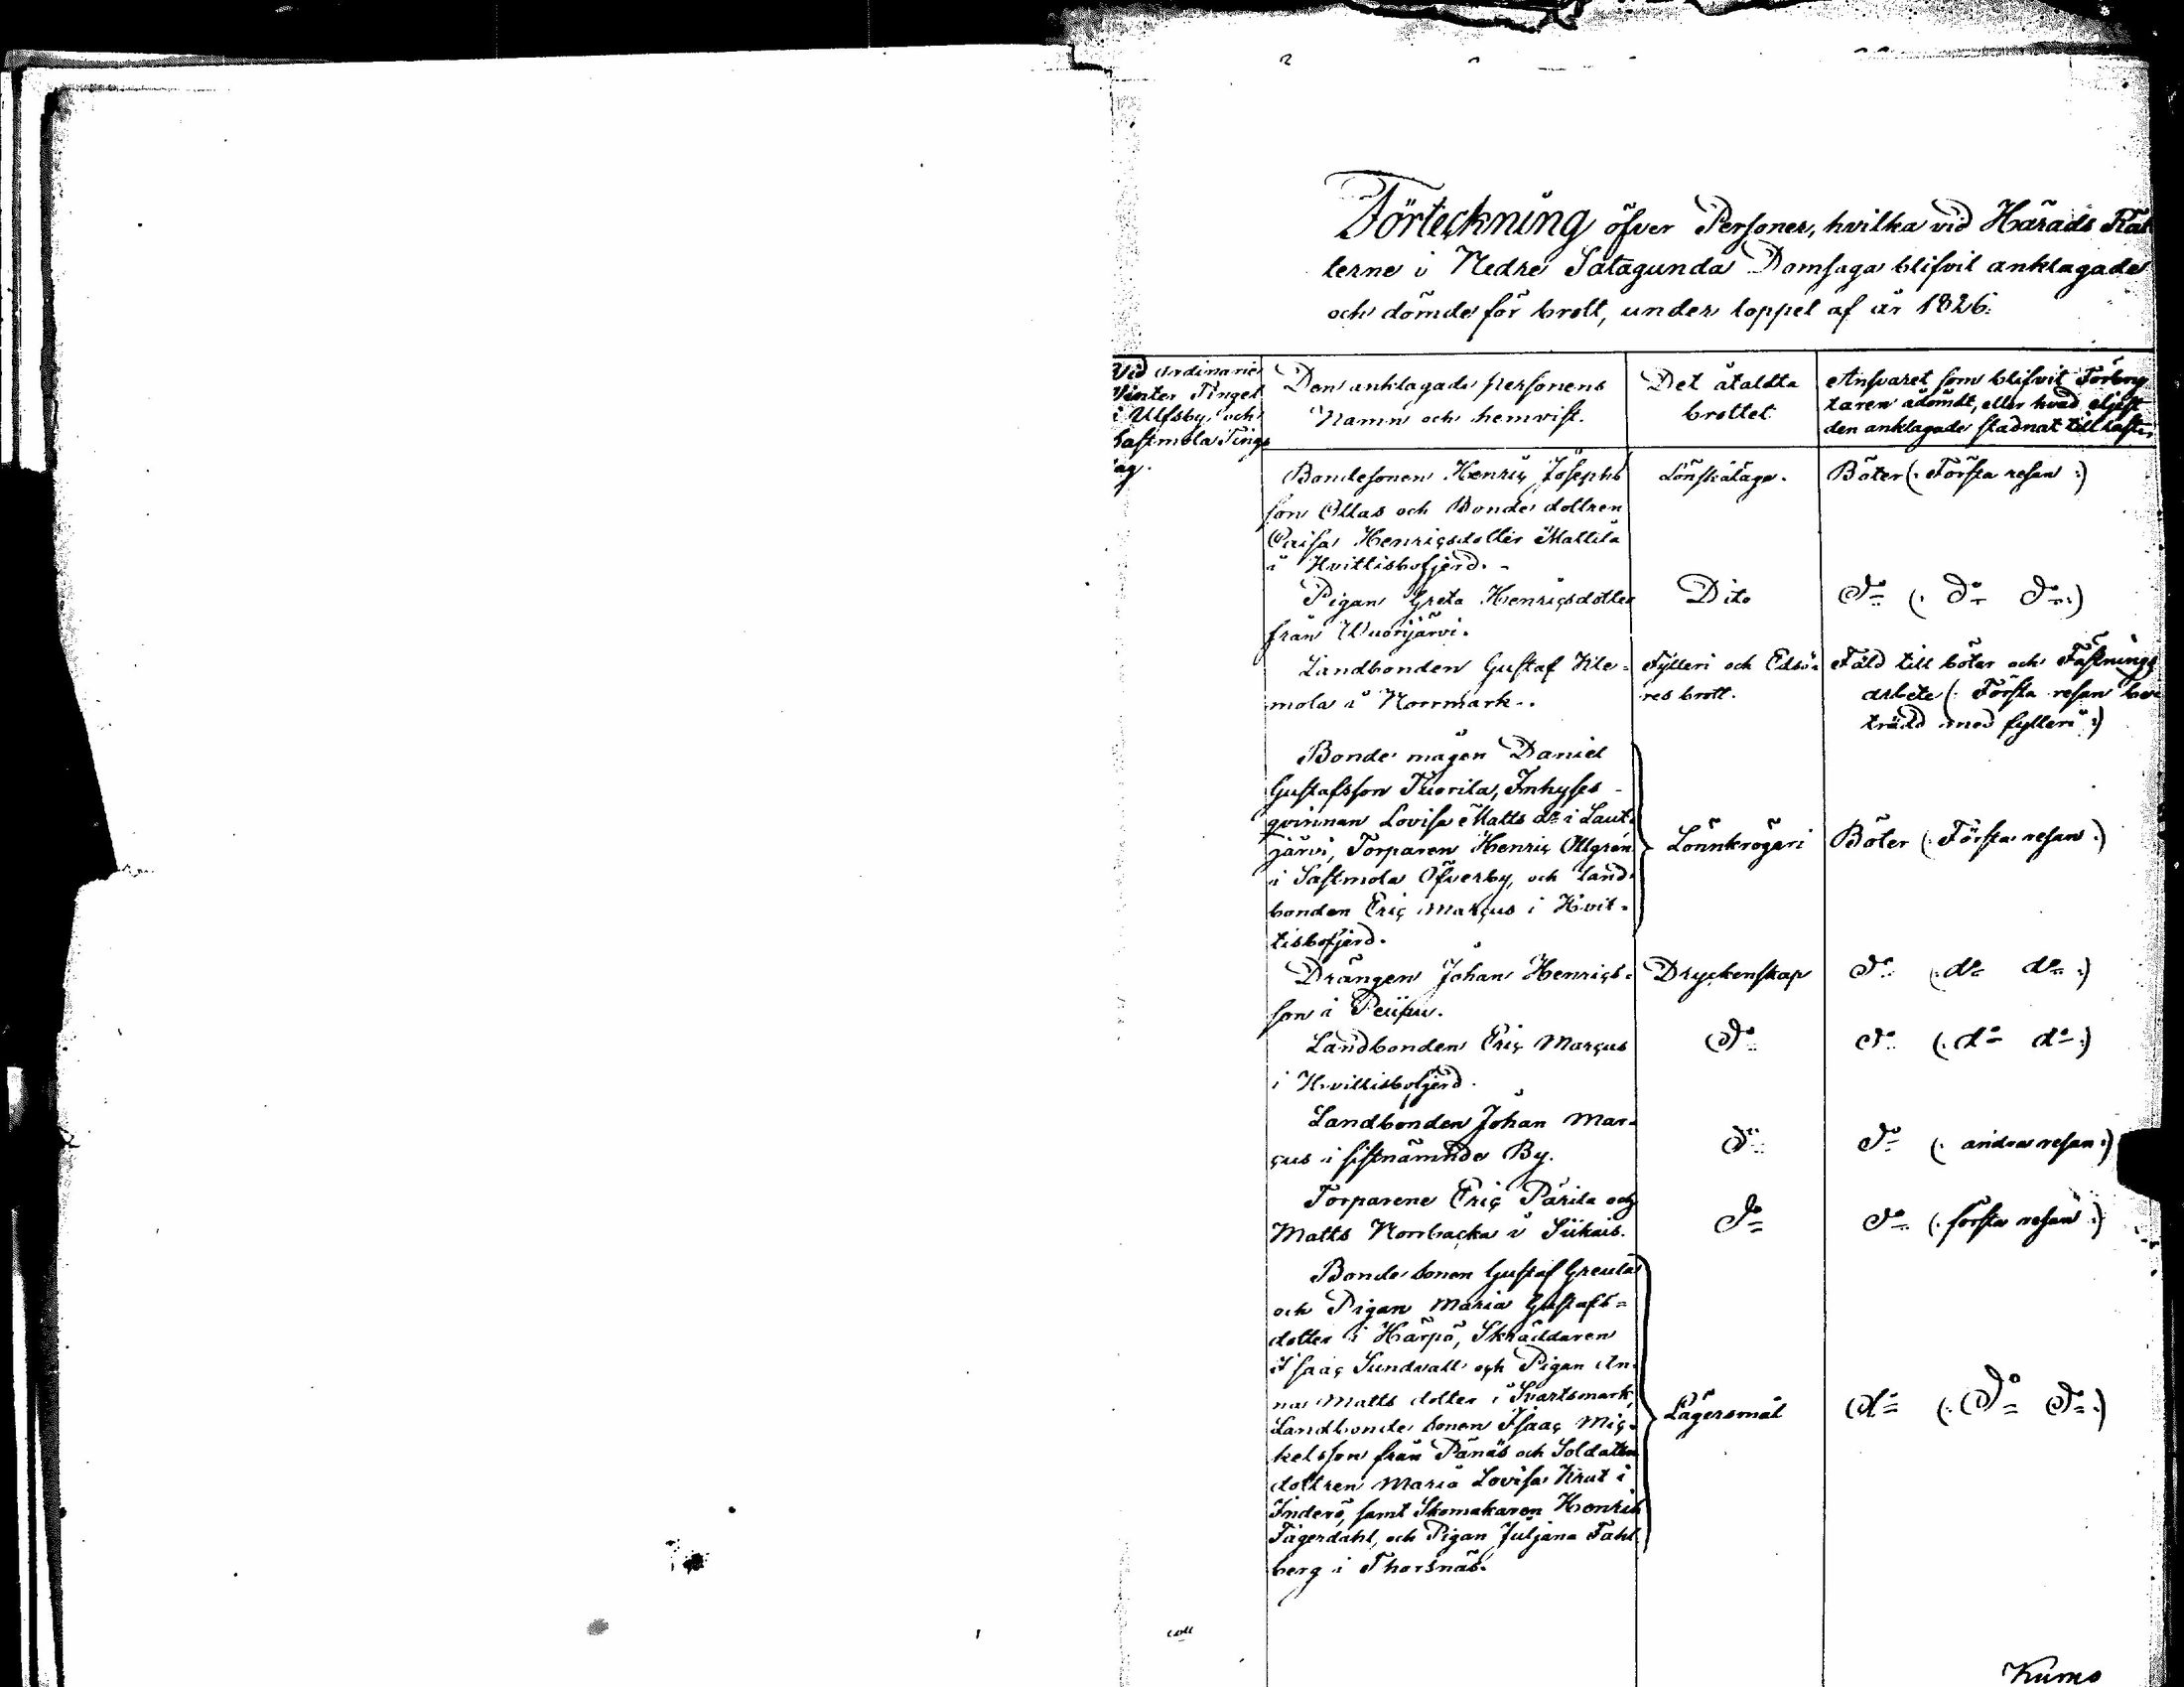 Förteckning öfver Personer, hvilka vid Härads Rät
terne i Nedre Satagunda Domsaga blifvit anklagade
och dömde för brott, under loppet af år 1826.
Vid ordinarie
Vinter Tinget
i Ulfsby och
Sastmola Tings
lag.
Den anklagade personens
Namn och hemvist.
Det åtaldta
brottet
Ansvaret som blifvit Förbry
taren ådömdt, eller hvad eljest
den anklagade stadnat till last
Bondesonen Henric Josephs
son Ollas och Bonde dottren
Caisa Henricsdotter Mattila
i Hvittisbofjerd.
Lönskaläge.
Böter (: Första resan :)
Pigan Greta Henricsdotter
från Wuorijärvi.
Dito
Do (: Do Do :)
Landbonden Gustaf Kile=
mola i Norrmark.
Fylleri och Edsö=
res brott.
Fäld till böter och Fästnings
arbete (: Första resan be
trädd med fylleri :)
Bonde mågen Daniel
Gustafsson Tuorila, Inhyses
qvinnan Lovisa Matts dr i Laut
järvi, Torparen Henric Ollgren
i Sastmola Öfverby, och land
bonden Eric Marcus i Hvit=
tisbofjerd.
Lönnkrögeri
Böter (: Första resan :)
Drängen Johan Henrics=
son i Peipu.
Dryckenskap
Do (: do do :)
Landbonden Eric Marcus
i Hvittisbofjerd.
Do
Do (: do do :)
Landbonden Johan Mar=
cus i sistnämnde By.
Do
Do (: andra resan :)
Torparene Eric Pärila och
Matts Norrbacka i Siikais.
Do
Do (: första resan :)
Bonde sonen Gustaf Greula
och Pigan Maria Gustafs=
dotter i Härpö, Skräddaren
Isaac Sundvall och Pigan An
na Matts dotter i Svartsmark,
Landbonde sonen Isaac Mic=
kelsson från Pänäs och Soldaten
dottren Maria Lovisa Krut i
Inderö, samt Skomakaren Henrik
Fägerdahl, och Pigan Juljana Fahl
berg i Thorsnäs.
Lägersmål
do (: Do Do :)
Kumo